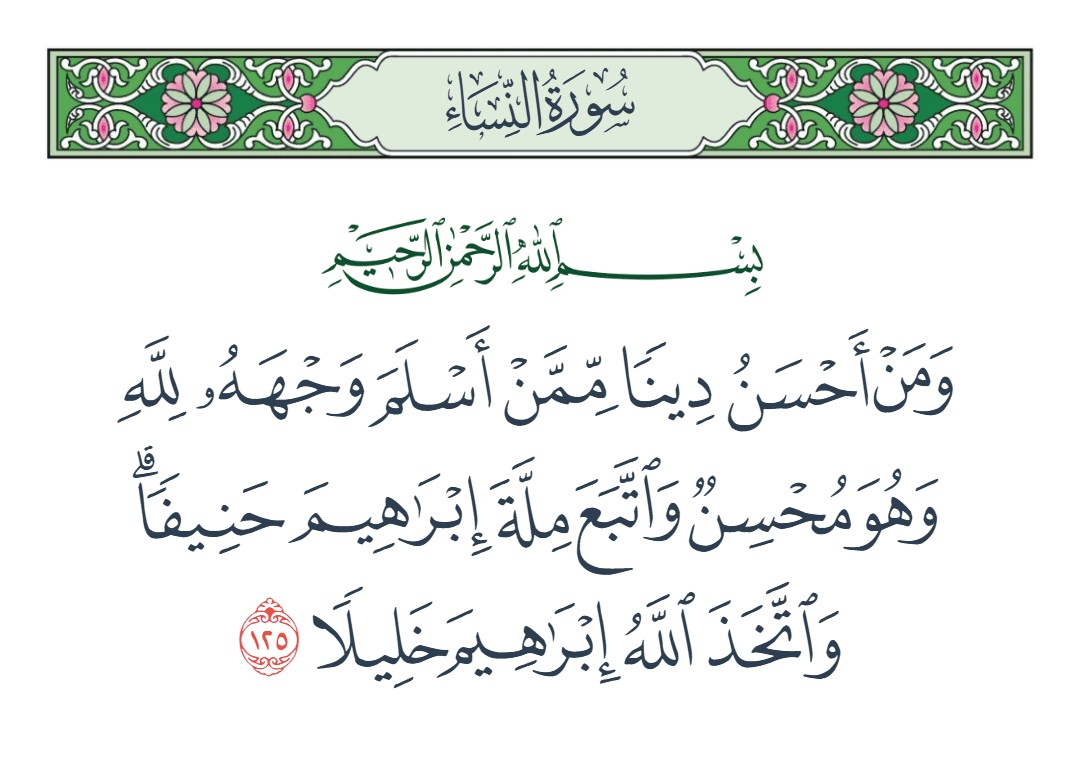 سُورَةُ النِّسَاءِ
بِسْمِ ٱللَّهِ ٱلرَّحْمَٰنِ ٱلرَّحِيمِ
وَمَنْ أَحْسَنُ دِينًا مِّمَّنْ أَسْلَمَ وَجْهَهُۥ لِلَّهِ
وَهُوَ مُحْسِنٌ وَٱتَّبَعَ مِلَّةَ إِبْرَٰهِيمَ حَنِيفًا ۗ
وَٱتَّخَذَ ٱللَّهُ إِبْرَٰهِيمَ خَلِيلًا ١٢٥